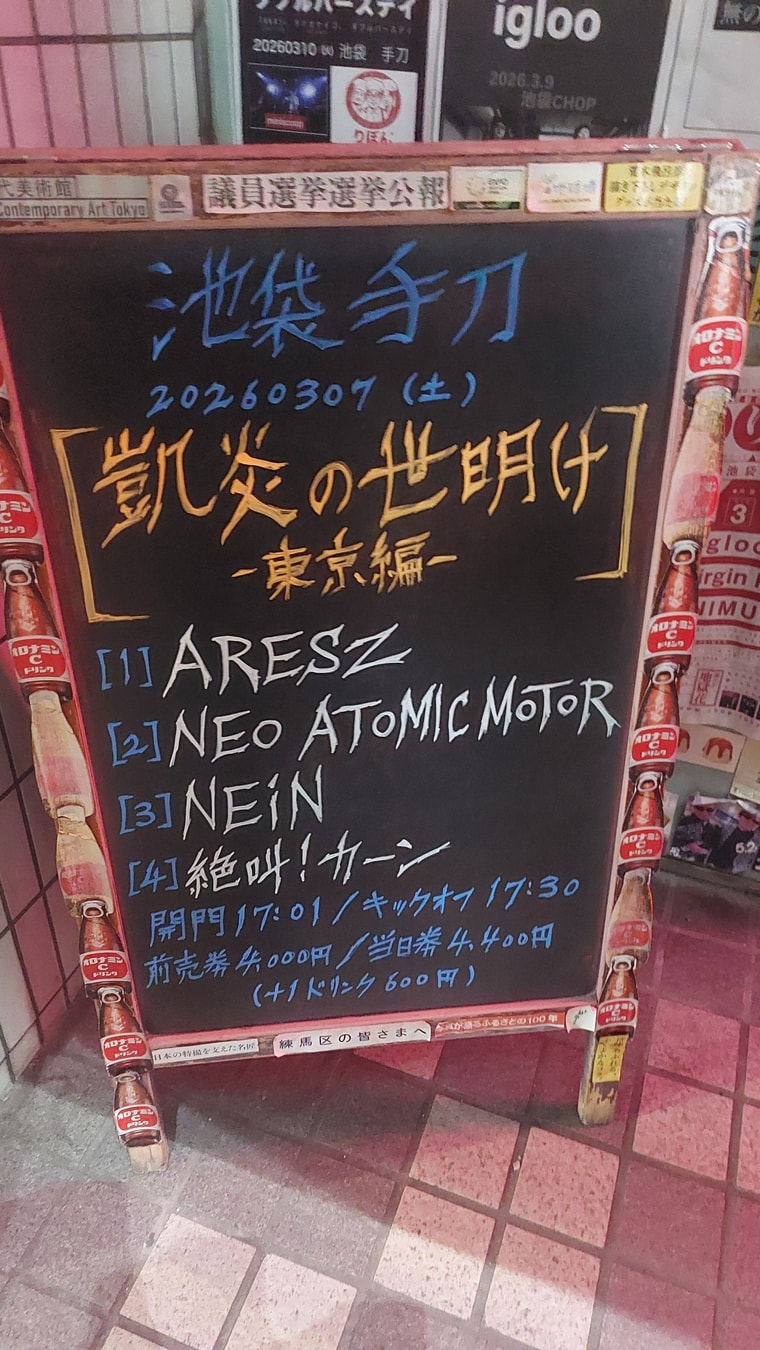 ダブルバースデイ
20260310 ㈫ 池袋 手刀
igloo
2026.3.9
池袋CHOP
代美術館
Contemporary Art Tokyo
議員選挙選挙公報
池袋手刀
20260307 (土)
[凱炎の世明け
-東京編-]
[1] ARESZ
[2] NEO ATOMIC MOTOR
[3] NEiN
[4] 絶叫!カーン
開門 17:01 / キックオフ 17:30
前売券 4,000円 / 当日券 4,400円
(+1ドリンク 600円)
日本の特撮を支えた名匠
練馬区の皆さまへ
ふるさとの100年
オロナミン
C
ドリンク